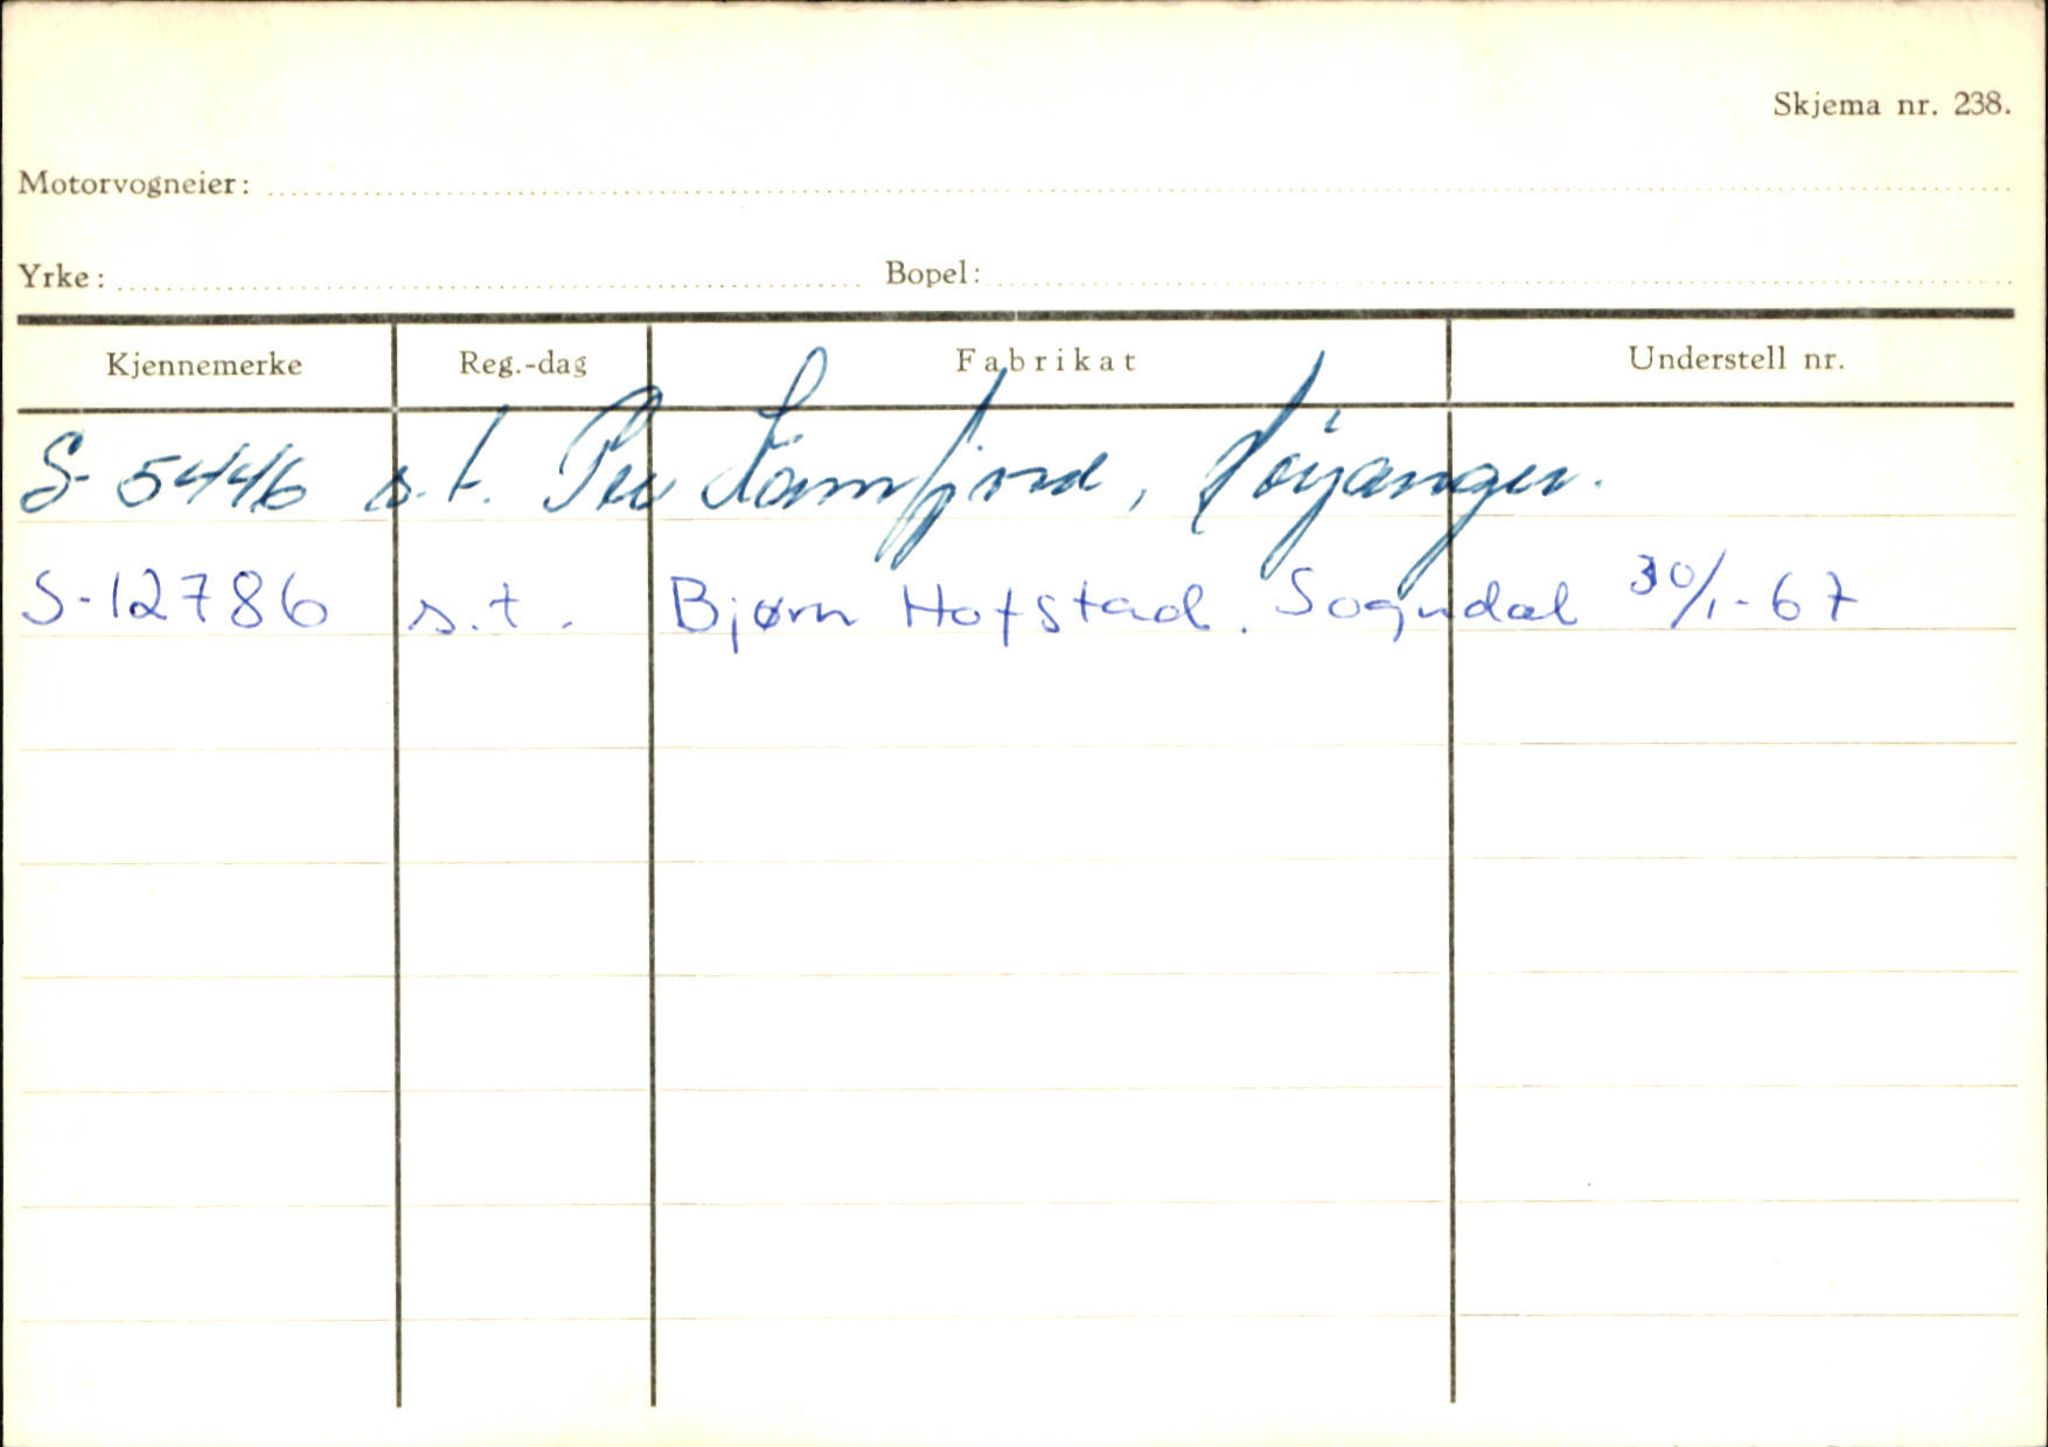 Skjema nr. 238.
Motorvogneier:
Yrke: Bopel:
Kjennemerke Reg.-dag Fabrikat Understell nr.
S-5446 s.t. Per Lamfjord, Høyanger.
S-12786 s.t. Bjørn Hofstad. Sogndal 30/1-67